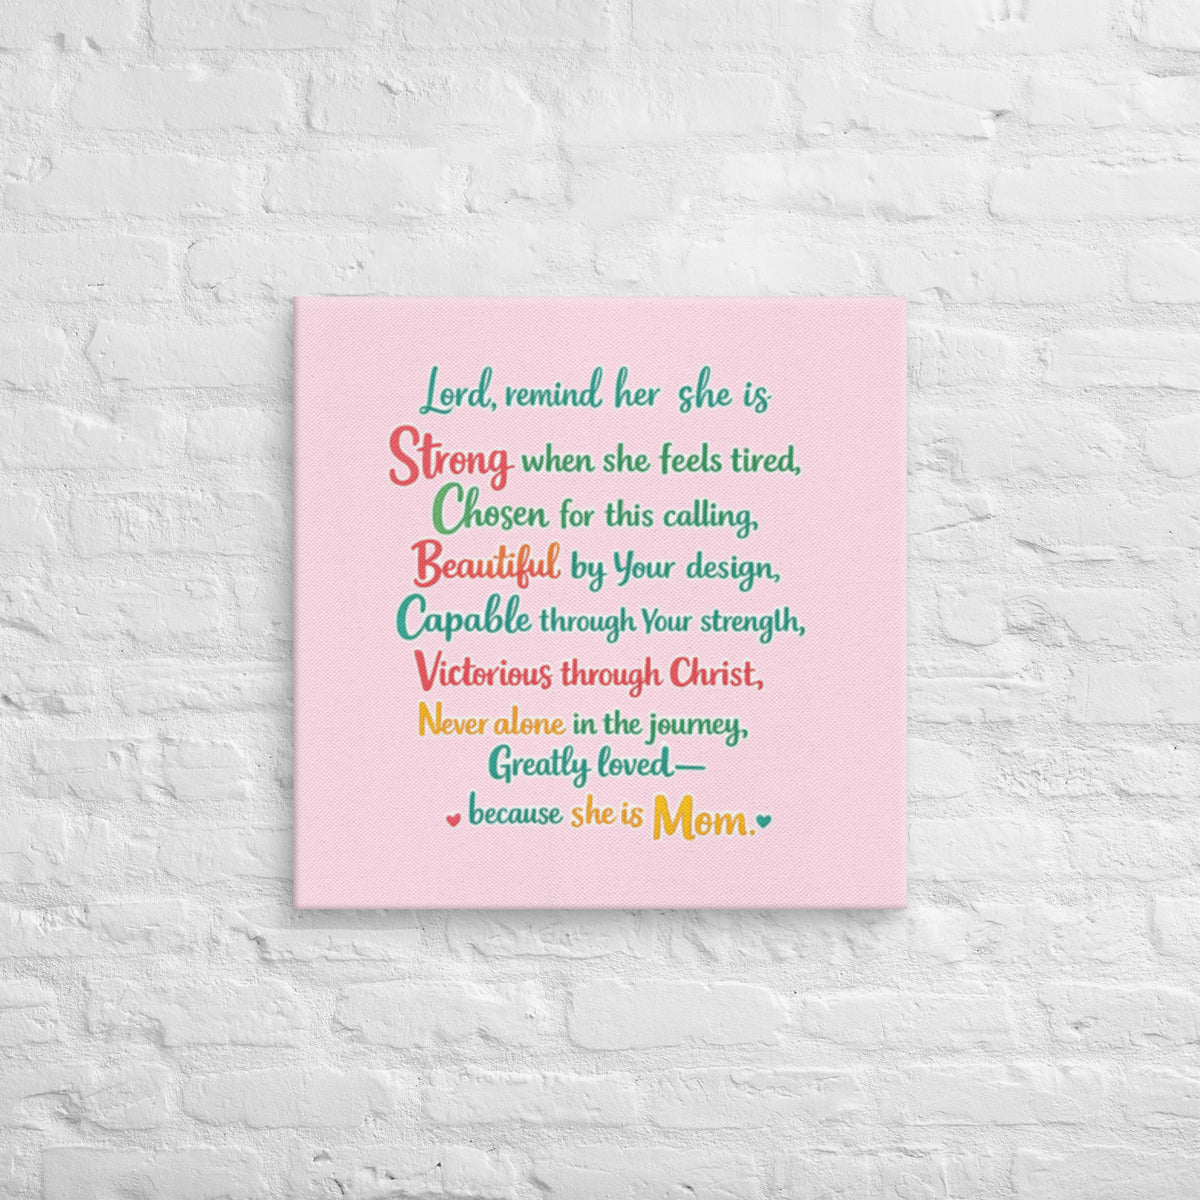 Lord, remind her she is
Strong when she feels tired,
Chosen for this calling,
Beautiful by Your design,
Capable through Your strength,
Victorious through Christ,
Never alone in the journey,
Greatly loved—
because she is Mom.